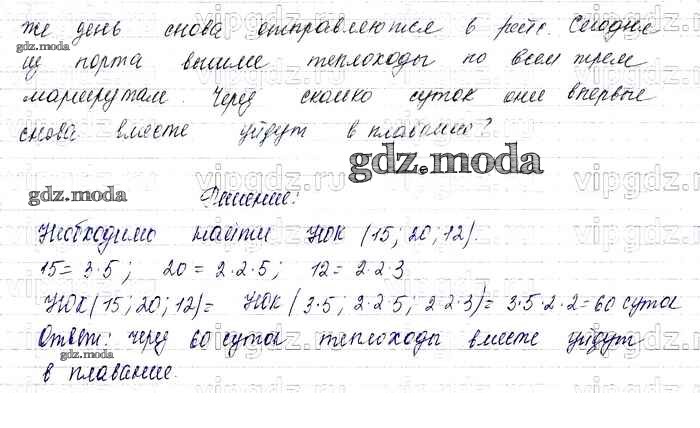 же день снова отправляются в рейс. Сегодня
из порта вышли теплоходы по всем трем
маршрутам. Через сколько суток они впервые
снова вместе уйдут в плавание?
gdz.moda
Решение:
Необходимо найти НОК (15; 20; 12).
15 = 3·5; 20 = 2·2·5; 12 = 2·2·3
НОК (15; 20; 12) = НОК (3·5; 2·2·5; 2·2·3) = 3·5·2·2 = 60 суток
Ответ: через 60 суток теплоходы вместе уйдут
в плавание.